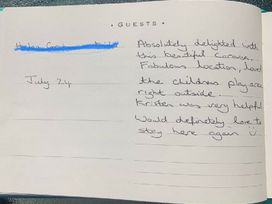 • GUESTS •
Absolutely delighted with
this beautiful Caravan.
Fabulous location, loved
July 24
the children play area
right outside.
Kristen was very helpful
Would definitely love to
stay here again